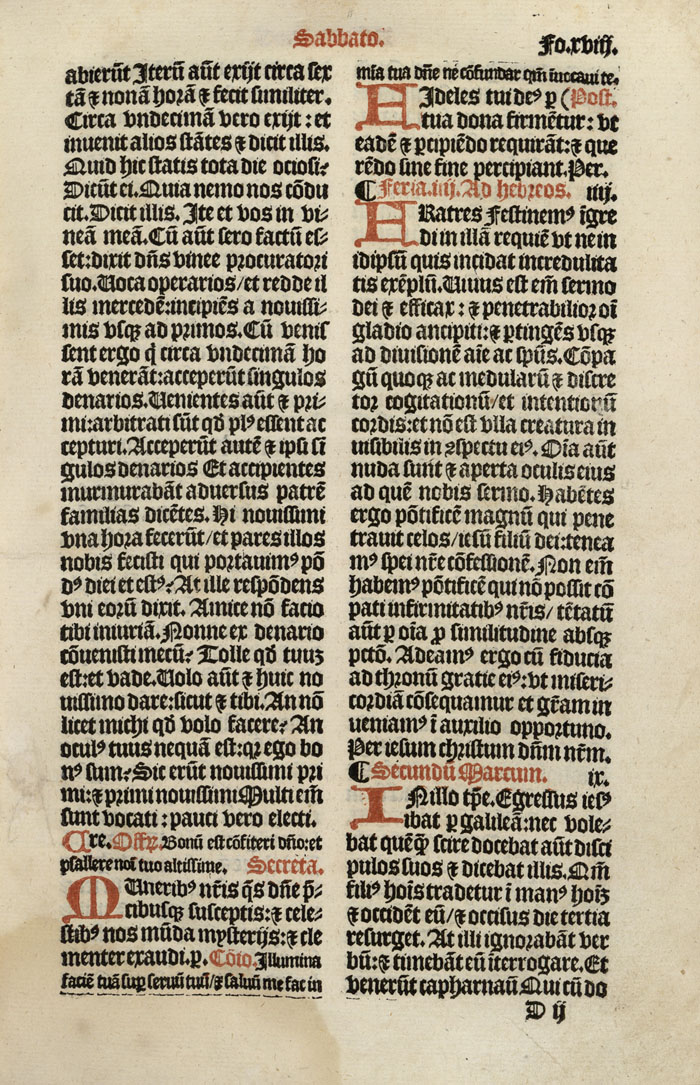 Sabbato.
Fo.xviij.
abierūt Iterū aūt exijt circa sex
tā ⁊ nonā horā ⁊ fecit similiter.
Circa vndecimam vero exijt : et
invenit alios stātes ⁊ dicit illis.
Quid hic statis tota die ociosi?
Dicūt ei. Quia nemo nos cōdu
cit. Dicit illis. Ite et vos in vi⸗
neā meā. Cū aūt sero factū es⸗
set: dixit dn̄s vinee procuratori
suo. Uoca operarios/et redde il
lis mercedē: incipiēs a nouissi⸗
mis vsqꝫ ad primos. Cū venis
sent ergo q̇ circa vndecimā ho
rā venerāt: acceperūt singulos
denarios. Uenientes aūt ⁊ pri⸗
mi: arbitrati sūt qd̓ plꝰ essent ac
cepturi. Acceperūt autē ⁊ ipsi sī
gulos denarios Et accipientes
murmurabāt adversus patrē
familias dicētes. Hi nouissimi
vna hora fecerūt/et pares illos
nobis fecisti qui portauimꝰ pō
dꝰ diei et estꝰ? At ille respōdens
vni eorū dixit. Amice nō facio
tibi iniuriā. Nonne ex denario
cōuenisti mecū? Tolle qd̓ tuuꝫ
est: et vade. Uolo aūt ⁊ huic no
uissimo dare: sicut ⁊ tibi. An nō
licet michi qd̓ volo facere? An
oculꝰ tuus nequā est: qꝛ ego bo
nꝰ sum? Sic erūt nouissimi pri
mi: ⁊ primi nouissimi Multi em̄
sunt vocati : pauci vero electi.
Cre. Offꝫ. Bonū est cōfiteri dn̄o: et
psallere noī tuo altissime. Secreta.
MUneribꝰ nr̄is qs̄ dn̄e p̄⸗
cibusqꝫ susceptis: ⁊ cele⸗
stibꝰ nos mūda mysterijs: ⁊ cle
menter exaudi. p. Cōio. Illumina
faciē tuā sup̄ seruū tuū/⁊ saluū me fac in
mīa tua dn̄e ne cōfundar qm̄ īuocaui te.
FIdeles tui deꝰ ꝑ (Post.
tua dona firmētur: vt
eadē ⁊ ꝑcipiēdo requirāt: ⁊ que
rēdo sine fine percipiant. Per.
¶ Feria.iiij. Ad hebreos. iiij.
FRatres Festinemꝰ īgre
di in illā requiē vt ne in
idipsū quis incidat incredulita
tis exēplū. Uiuus est em̄ sermo
dei ⁊ efficax: ⁊ penetrabilior oī
gladio ancipiti: ⁊ ꝑtingēs vsqꝫ
ad diuisionē aīe ac spūs. Cōpa
gū quoqꝫ ac medularū ⁊ discre
tor cogitationū/et intentionū
cordis: et nō est vlla creatura in
uisibilis in ꝯspectu eiꝰ. Oīa aūt
nuda sunt ⁊ aperta oculis eius
ad quē nobis sermo. Habētes
ergo pōtificē magnū qui pene
trauit celos/iesū filiū dei: tenea
mꝰ spei nr̄e cōfessionē. Non em̄
habemꝰ pōtificē qui nō possit cō
pati infirmitatibꝰ nr̄is/ tētatū
aūt ꝑ oīa ꝓ similitudine absqꝫ
pctō. Adeamꝰ ergo cū fiducia
ad thronū gratie eiꝰ: vt miseri⸗
cordiā cōsequamur et gr̄am in
ueniamꝰ ī auxilio opportuno.
Per iesum christum dn̄m nr̄m.
¶ Secundū Marcum. ix.
INillo tp̄e. Egressus iesꝰ
ibat ꝑ galileā: nec vole⸗
bat quēq̄ꝫ scire docebat aūt disci
pulos suos ⁊ dicebat illis. Qm̄
filiꝰ hoīs tradetur ī manꝰ hoīꝫ
⁊ occidēt eū/⁊ occisus die tertia
resurget. At illi ignorabāt ver
bū: ⁊ timebāt eū īterrogare. Et
venerūt capharnaū Qui cū do
D ij